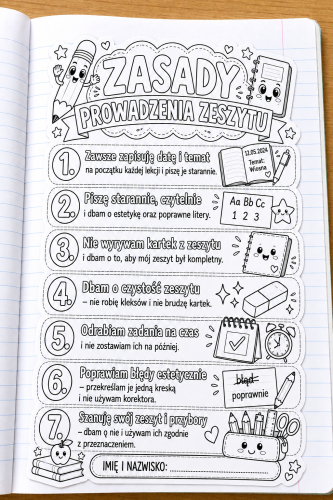 ZASADY
PROWADZENIA ZESZYTU
1. Zawsze zapisuję datę i temat
na początku każdej lekcji i piszę je starannie.
12.05.2024
Temat:
Wiosna
2. Piszę starannie, czytelnie
i dbam o estetykę oraz poprawne litery.
Aa Bb Cc
1 2 3
3. Nie wyrywam kartek z zeszytu
i dbam o to, aby mój zeszyt był kompletny.
4. Dbam o czystość zeszytu
– nie robię kleksów i nie brudzę kartek.
5. Odrabiam zadania na czas
i nie zostawiam ich na później.
6. Poprawiam błędy estetycznie
– przekreślam je jedną kreską
i nie używam korektora.
błąd
poprawnie
7. Szanuję swój zeszyt i przybory
– dbam o nie i używam ich zgodnie
z przeznaczeniem.
IMIĘ I NAZWISKO: